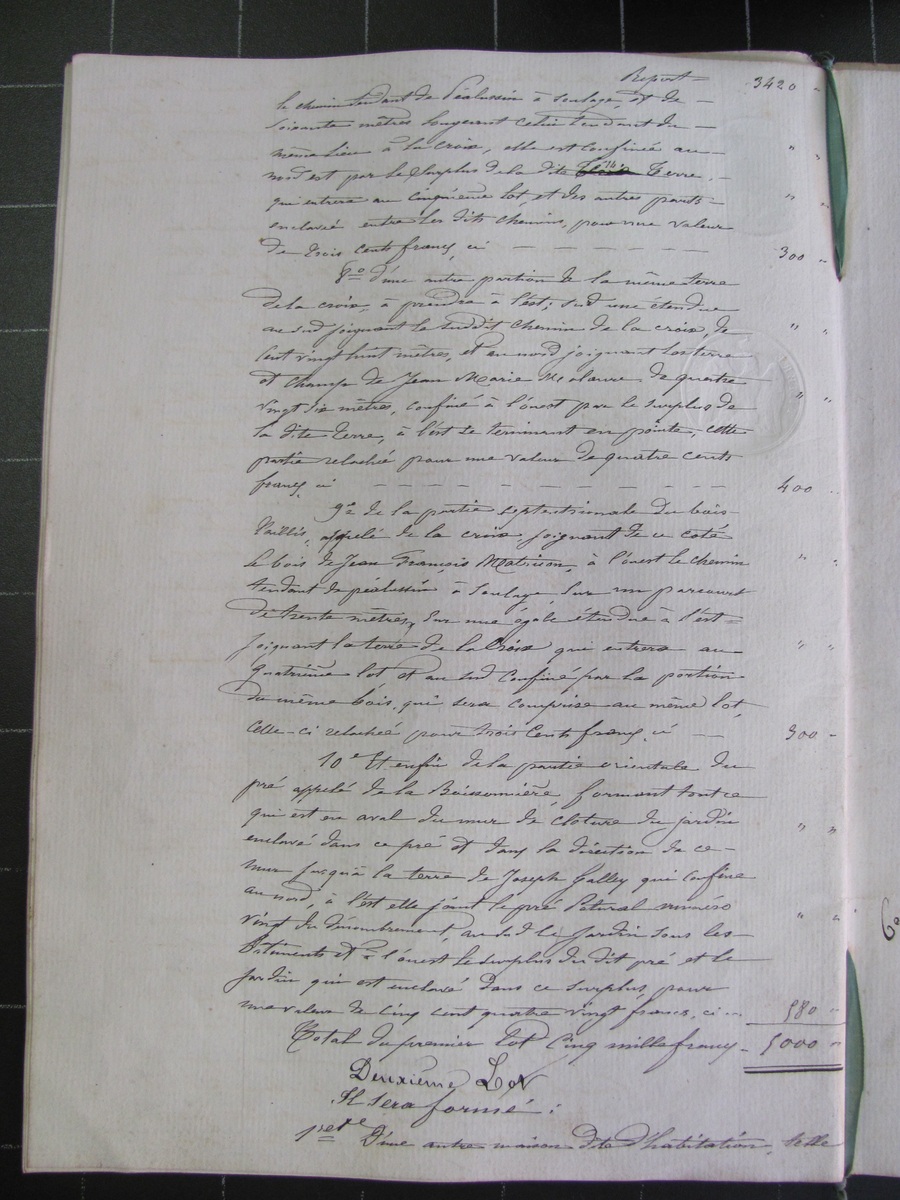 Report = 3420 "
le chemin tendant de Pélussin à Soulage, et de —
Soixante mètres longeant celui tendant du —
même lieu à la croix, elle est confinée au — " "
nord est par le Surplus de la dite Terre, —
qui entrera au cinquième lot, et des autres parts — " "
enclavée entre les dits chemins, pour une valeur
de trois cents francs, ci — — — — — — 300 "
8° d'une autre partion de la même terre
de la croix, à prendre à l'est, sur une étendue
au sud joignant le susdit chemin de la croix, de " "
cent vingt huit mètres, et au nord joignant les terre
et champ de Jean Marie de quatre " "
vingt dix mètres, confiné à l'ouest par le surplus de
la dite terre, à l'est se terminant en pointe, cette
partie relachée pour une valeur de quatre cents
francs ci — — — — — — — — 400 "
9° de la partie septentrionale du bois
taillis, appelé de la croix, joignant de ce coté
le bois de Jean François, à l'ouest le chemin " "
tendant de pélussin à Soulage, sur un parcourt
de trente mètres, sur une égale étendue à l'est =
joignant la terre de la Croix qui entrera au " "
quatrième lot, et au sud confiné par la portion
du même bois, qui sera comprise au même lot,
celle-ci relachée pour trois cents francs, ci — — 300 "
10° Et enfin de la partie orientale du
pré appelé de la Boissonnière, formant tout ce
qui est en aval du mur de cloture du jardin " "
enclavé dans ce pré et dans la direction de ce —
mur jusqu'à la terre de Joseph Galley qui confine
au nord, à l'est elle joint le pré numéro " "
vingt du dénombrement, au sud le jardin sous les
Bâtiments et à l'ouest le surplus du dit pré et le
jardin qui est enclavé dans ce surplus, pour
une valeur de cinq cent quatre vingt francs, ci — 580 "
Total du premier Lot Cinq mille francs — 5000 "
Deuxième Lot
Il sera formé :
1ent D'une autre maison dite d'habitation, telle